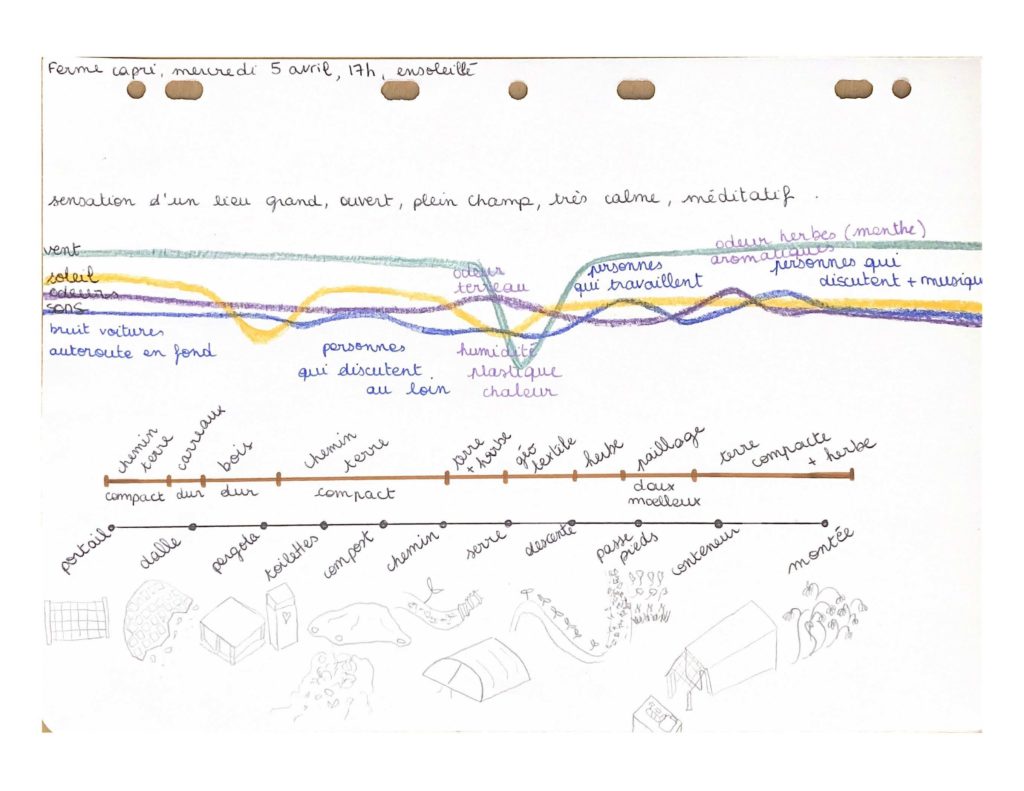 Ferme capri, mercredi 5 avril, 17h, ensoleillé
sensation d'un lieu grand, ouvert, plein champ, très calme, méditatif.
vent
soleil
odeurs
sons
bruit voitures
autoroute en fond
personnes
qui discutent
au loin
odeur
terreau
humidité
plastique
chaleur
personnes
qui travaillent
odeur herbes (menthe)
aromatiques
personnes qui
discutent + musique
chemin
terre
carreaux
bois
chemin
terre
terre
+ herbe
géo
textile
herbe
paillage
terre
compacte
+ herbe
compact
dur
dur
compact
doux
moelleux
portail
dalle
pergola
toilettes
compost
chemin
serre
descente
passe
pieds
conteneur
montée